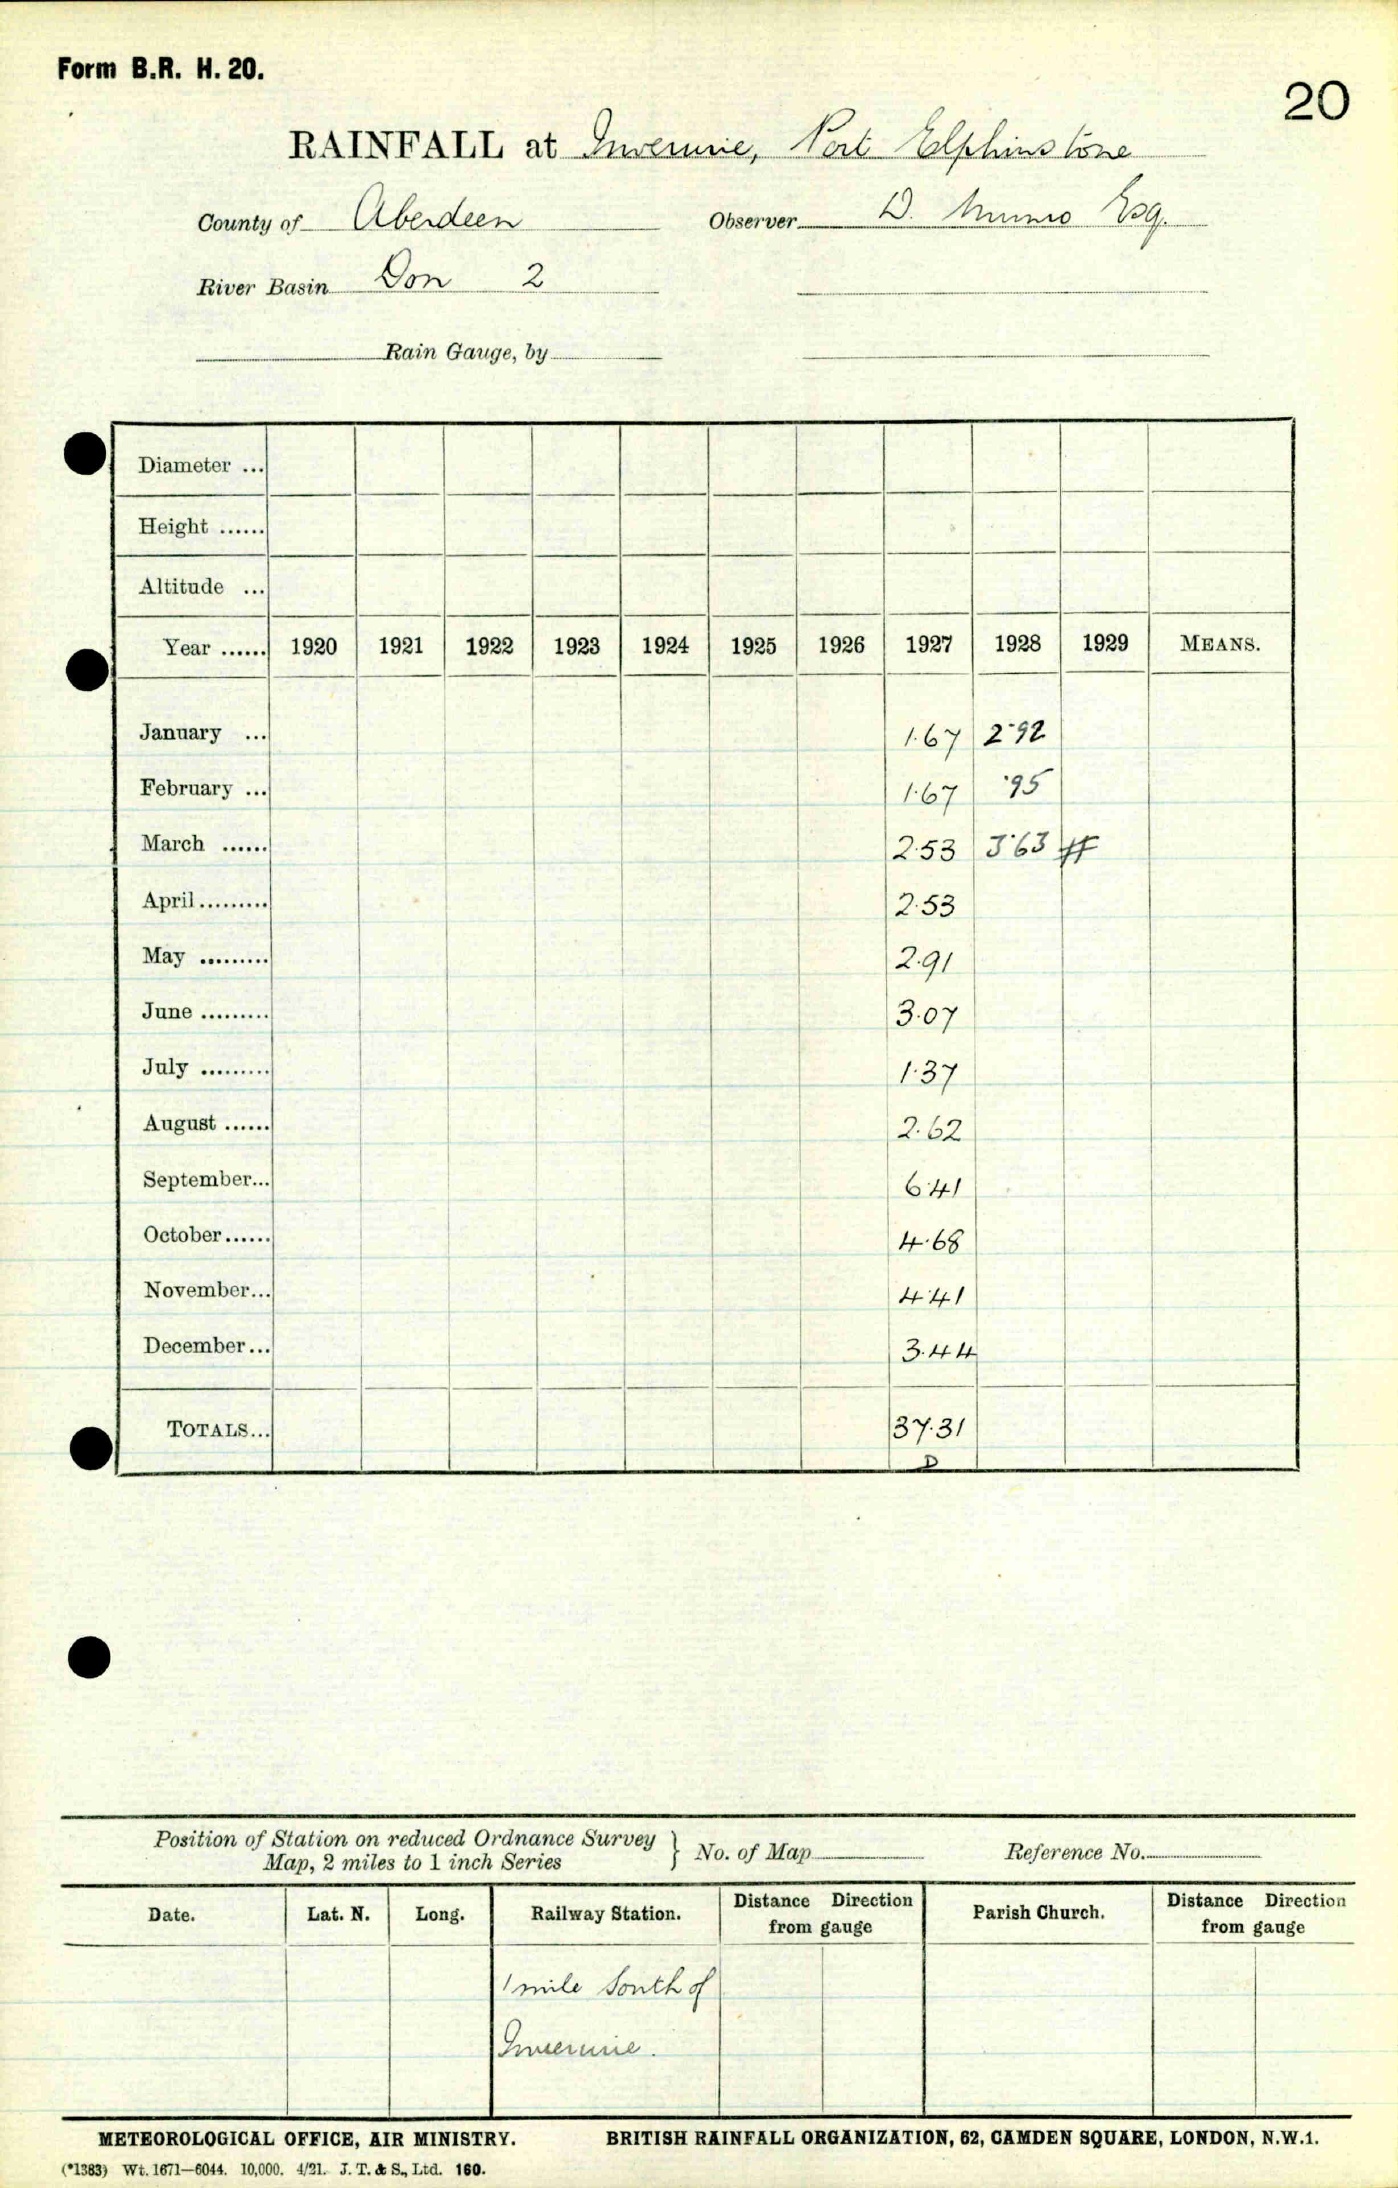 Form B.R. H. 20.
20
RAINFALL at Inverurie, Port Elphinstone
County of Aberdeen Observer D. Munro Esq.
River Basin Don 2
Rain Gauge, by
Diameter ...
Height ......
Altitude ...
Year ...... 1920 1921 1922 1923 1924 1925 1926 1927 1928 1929 MEANS.
January ... 1.67 2.92
February ... 1.67 .95
March ...... 2.53 3.63 #
April ......... 2.53
May ......... 2.91
June ......... 3.07
July ......... 1.37
August ...... 2.62
September... 6.41
October ...... 4.68
November... 4.41
December... 3.44
TOTALS... 37.31
D
Position of Station on reduced Ordnance Survey
Map, 2 miles to 1 inch Series } No. of Map Reference No.
Date. Lat. N. Long. Railway Station. Distance Direction from gauge Parish Church. Distance Direction from gauge
1 mile South of
Inverurie.
METEOROLOGICAL OFFICE, AIR MINISTRY. BRITISH RAINFALL ORGANIZATION, 62, CAMDEN SQUARE, LONDON, N.W.1.
(*1383) Wt. 1671—6044. 10,000. 4/21. J. T. & S., Ltd. 160.